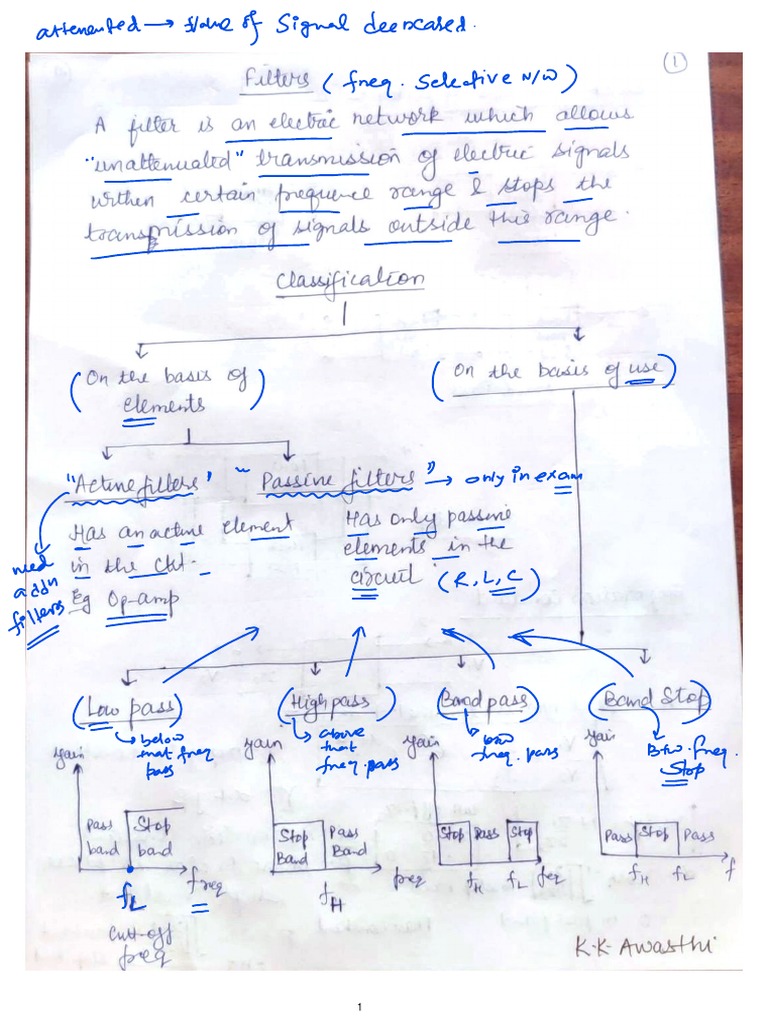 attenuated → value of Signal decreased.
1
Filters (freq. Selective N/W)
A filter is an electric network which allows
"unattenuated" transmission of electric signals
within certain frequence range & stops the
transmission of signals outside this range.
Classification
(On the basis of elements)
(On the basis of use)
"Active filters" "Passive filters" → only in exam
Has an active element
in the ckt.
Eg Op-amp
need
addn
filters
Has only passive
elements in the
circuit (R, L, C)
(Low pass) (High pass) (Band pass) (Band Stop)
↳ below
that freq
pass
↳ above
that
freq. pass
btw
freq. pass
Btw. freq.
Stop
gain
Pass band
Stop band
fL
freq
Cut-off
freq
gain
Stop Band
Pass Band
fH
freq
gain
Stop Pass Stop
fH fL freq
gain
Pass Stop Pass
fH fL f
K.K. Awasthi
1